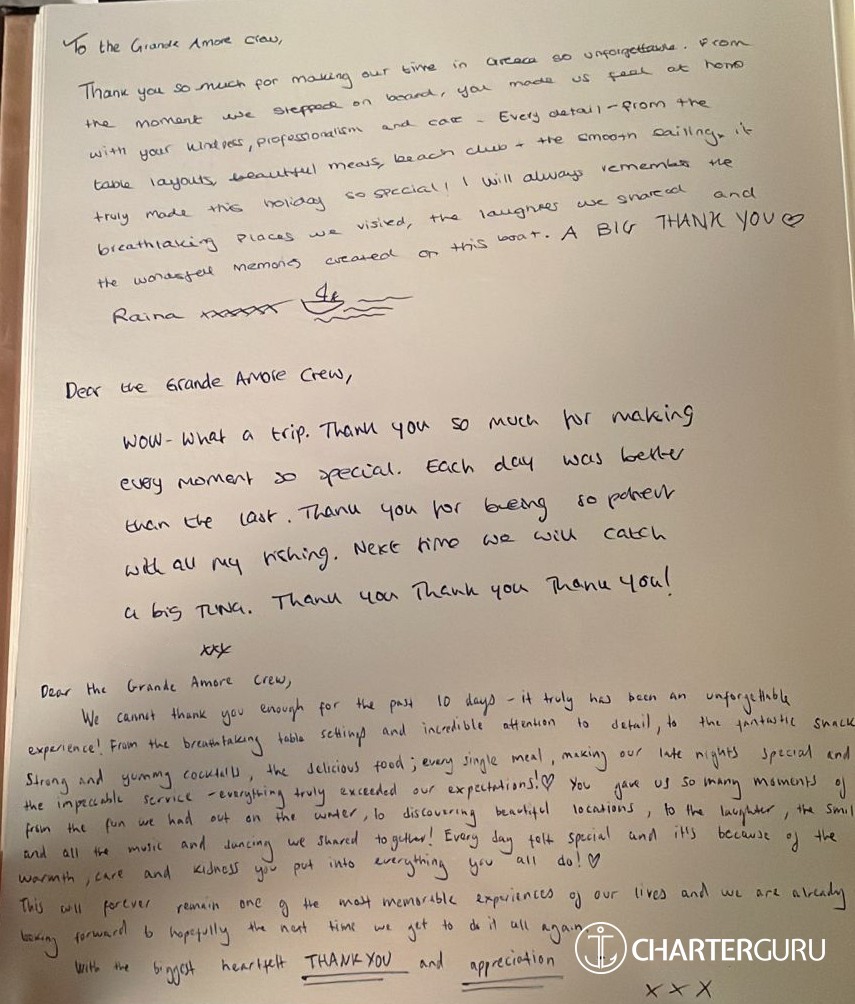 To the Grande Amore Crew,
Thank you so much for making our time in Greece so unforgettable. From
the moment we stepped on board, you made us feel at home
with your kindness, professionalism and care - Every detail - from the
table layouts, beautiful meals, beach club + the smooth sailing, it
truly made this holiday so special! I will always remember the
breathtaking places we visited, the laughter we shared and
the wonderful memories created on this boat. A BIG THANK YOU ♡
Raina xxxxxx
Dear the Grande Amore Crew,
WOW - What a trip. Thank you so much for making
every moment so special. Each day was better
than the last. Thank you for being so patient
with all my fishing. Next time we will catch
a big TUNA. Thank you Thank you Thank you!
xxx
Dear the Grande Amore Crew,
We cannot thank you enough for the past 10 days - it truly has been an unforgettable
experience! From the breathtaking table settings and incredible attention to detail, to the fantastic snack
strong and yummy cocktails, the delicious food; every single meal, making our late nights special and
the impeccable service - everything truly exceeded our expectations!♡ You gave us so many moments of
from the fun we had out on the water, to discovering beautiful locations, to the laughter, the smil
and all the music and dancing we shared together! Every day felt special and it's because of the
warmth, care and kidness you put into everything you all do! ♡
This will forever remain one of the most memorable experiences of our lives and we are already
looking forward to hopefully the next time we get to do it all again
With the biggest heartfelt THANK YOU and appreciation
x x x
CHARTERGURU